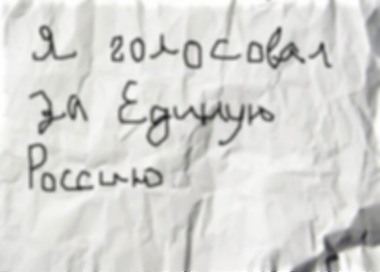 Я голосовал
за Единую
Россию